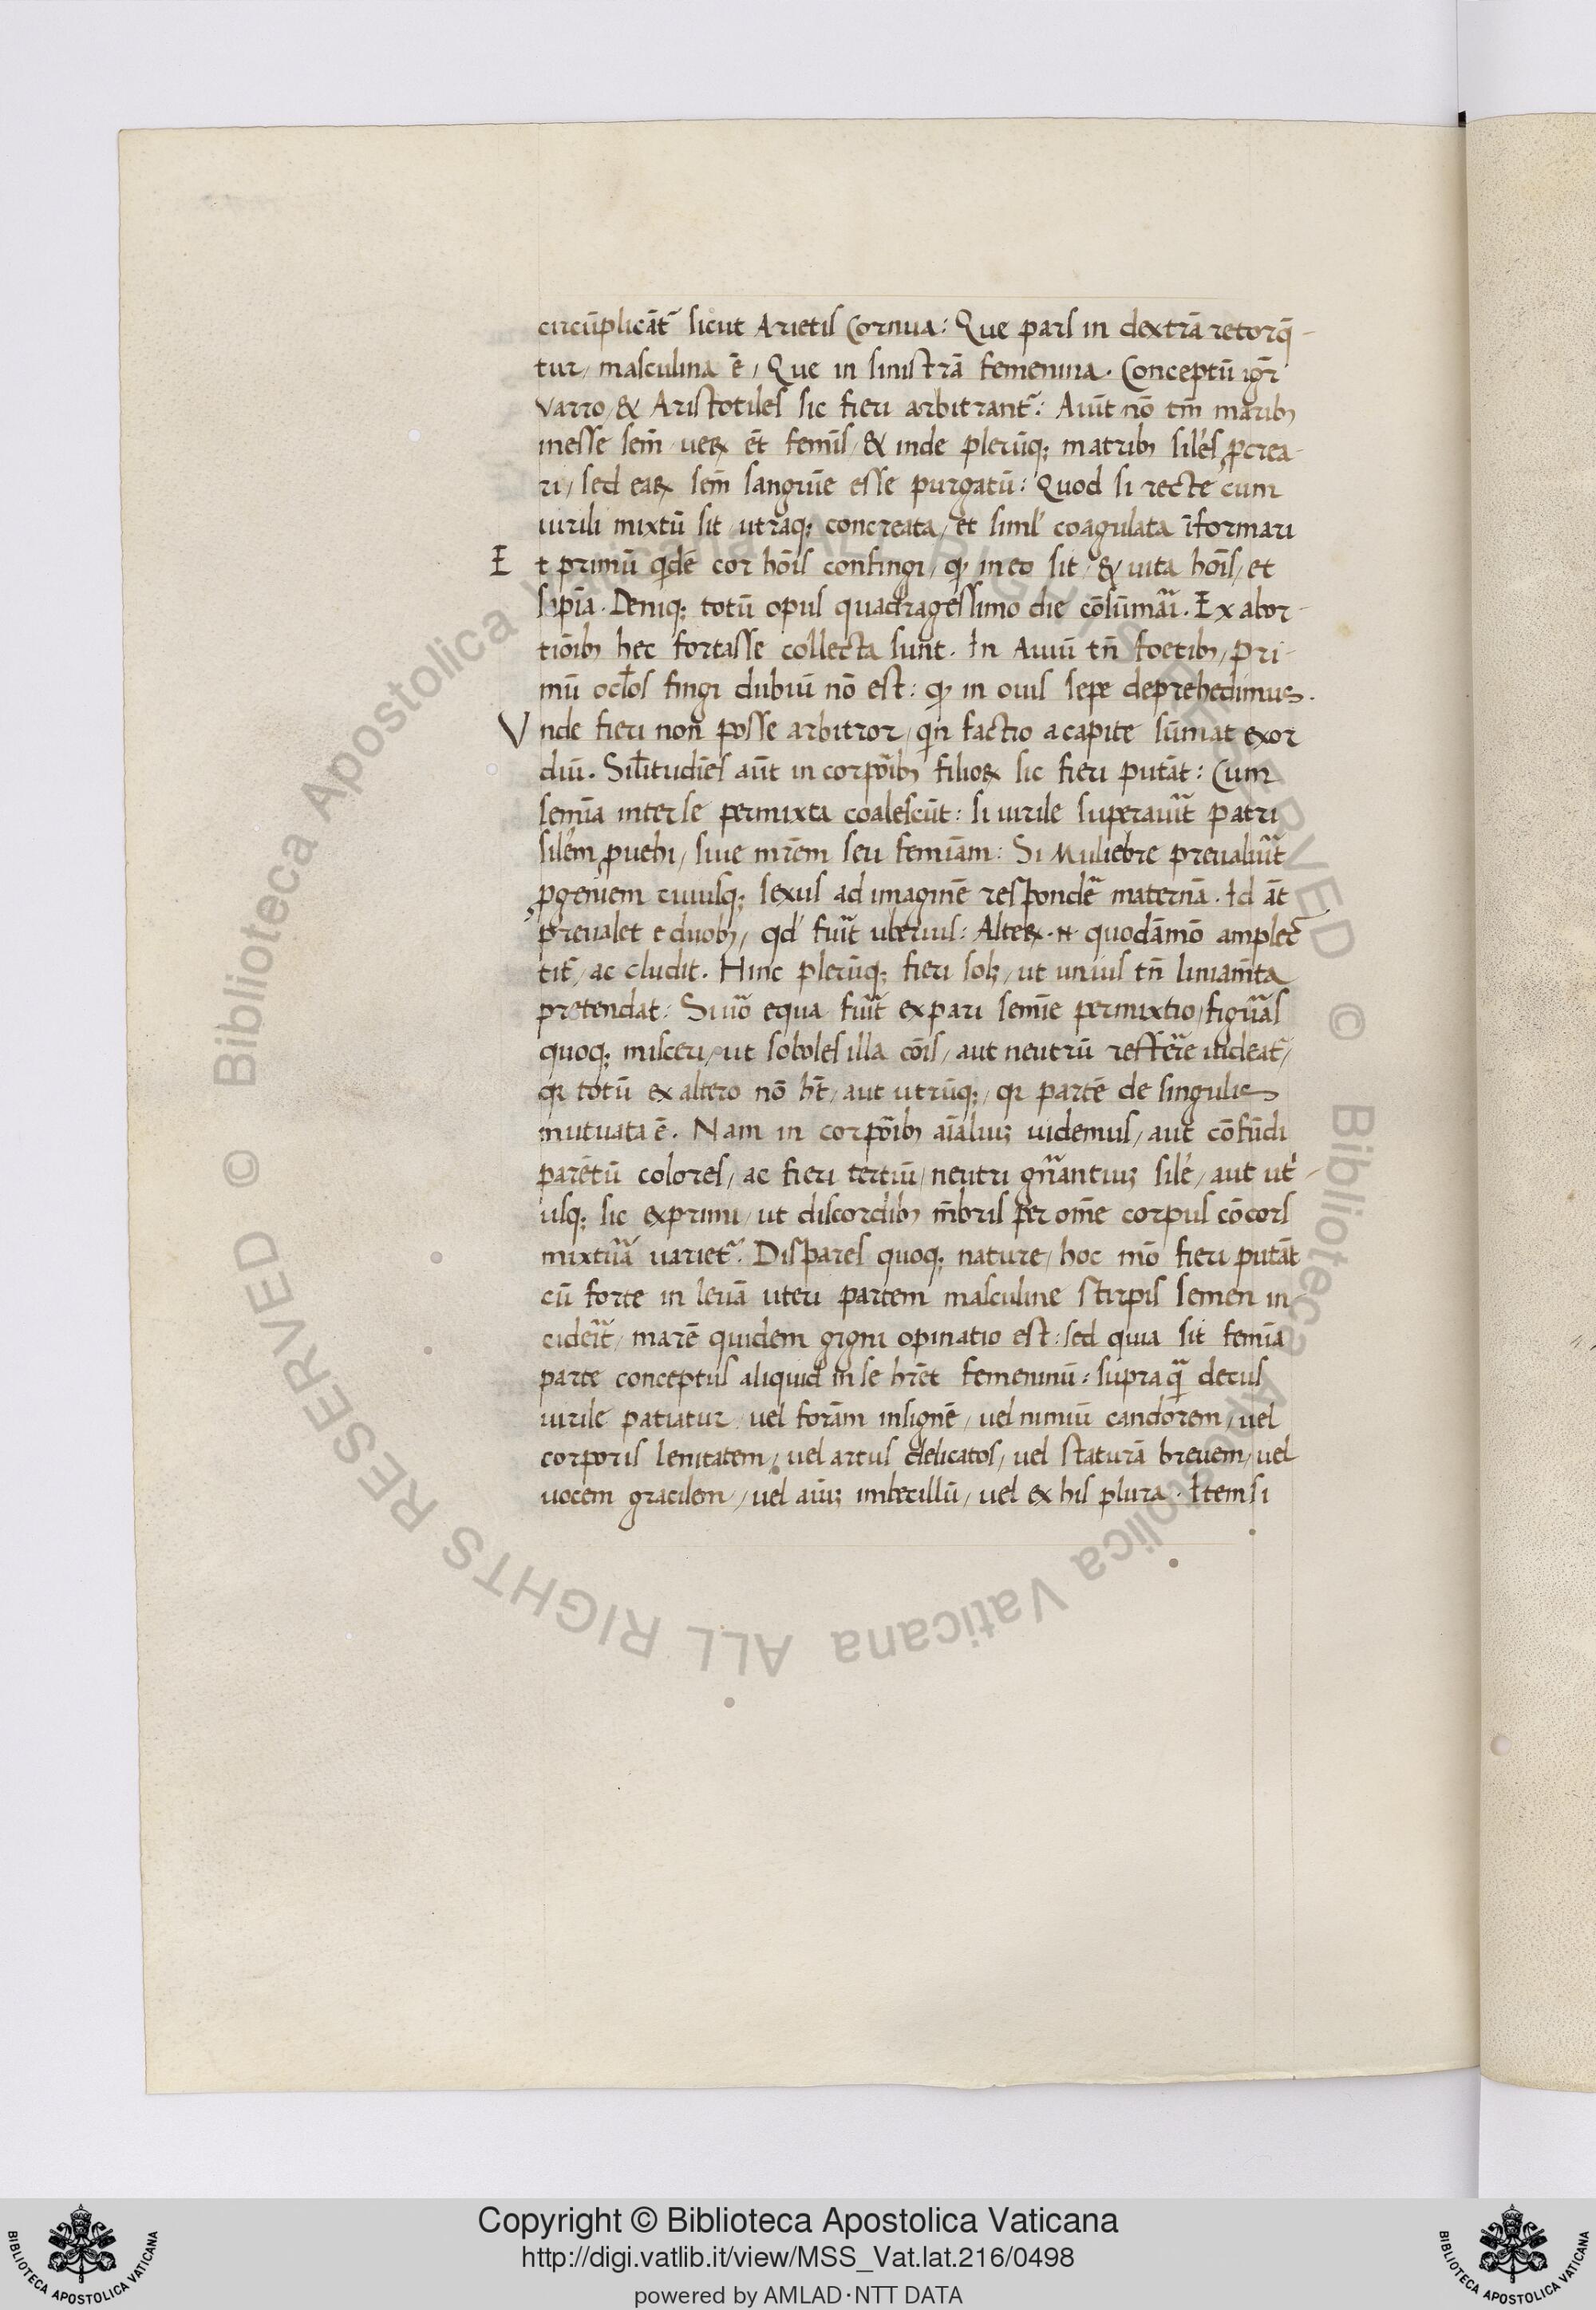 circūplicāt᷑ sicut Arietis Cornua: Que pars in dextrā retorq̄-
tur, masculina ē, Que in sinistrā femenina. Conceptū igr̄
Varro, & Aristotiles sic fieri arbitrant᷑: Aiūt nō tm̄ marib;
inesse sem̄ ueꝝ ēt femīs, & inde plerūq; matrib; silēs ꝓcrea-
ri, sed eaꝝ sem̄ sanguīe esse purgatū: Quod si recte cum
uirili mixtū sit utraq; concreata, et siml' coagulata īformari
Et primū qdē cor hōis confingi, ꝙ in eo sit, & uita hoīs, et
sıpīa. Deniq; totū opus quadragessimo die cōsūmāri. Ex abor-
tiōib; hec fortasse collecta sunt. In Auiū tn̄ foetib;, pri-
mū oclos fingi dubiū nō est: ꝙ in ouis sepe deprehedimus.
Vnde fieri non posse arbitror, qin factio a capite sūmat exor
diū. Silitudiēs aūt in corpōrib; filioꝝ sic fieri putāt: Cum
semīa inter se permixta coalescūt: si uirile superauit patri
silēm ꝓuehi, siue mrēm seu femīam: Si Muliebre preualuit
ꝓgeniem cuiusq; sexus ad imaginē respondēr maternā. Id āt
preualet e duob;, qd' fuit uberius: Alteꝝ .n. quodāmō amplec
tit᷑, ac cludit. Hinc plerūq; fieri solꝫ, ut unius tn̄ liniam̄ta
pretendat: Si uo equa fuit ex pari semīe permixtio, figuras
quoq; misceri, ut soboles illa cōis, aut neutrū refferre uideat᷑,
qr totū ex altero nō h̄t, aut utrūq;, qr partē de singulis
mutuata ē. Nam in corpōrib; aīaliuꝫ uidemus, aut cōfūdi
parētū colores, ac fieri tertiū, neutri gn̄antiuꝫ silē, aut ut'-
usq; sic exprimi, ut discordib; m̄bris per om̄e corpus cōcors
mixtura uariet᷑. Dispares quoq; nature, hoc mō fieri putāt
cū forte in leuā uteri partem masculine stirpis semen in-
ciderit, marē quidem gigni opinatio est: sed quia sit femīa
parte conceptus aliquid in se hr̄et femeninū: supra q̄ decus
uirile patiatur, uel forām insignē, uel nimiū candorem, uel
corporis lenitatem, uel artus delicatos, uel staturā breuem, uel
uocem gracilem, uel aīuꝫ imbecillū, uel ex his plura. Item si
© Biblioteca Apostolica Vaticana ALL RIGHTS RESERVED © Biblioteca Apostolica Vaticana ALL RIGHTS RESERVED
Copyright © Biblioteca Apostolica Vaticana
http://digi.vatlib.it/view/MSS_Vat.lat.216/0498
powered by AMLAD·NTT DATA
BIBLIOTECA APOSTOLICA VATICANA
BIBLIOTECA APOSTOLICA VATICANA